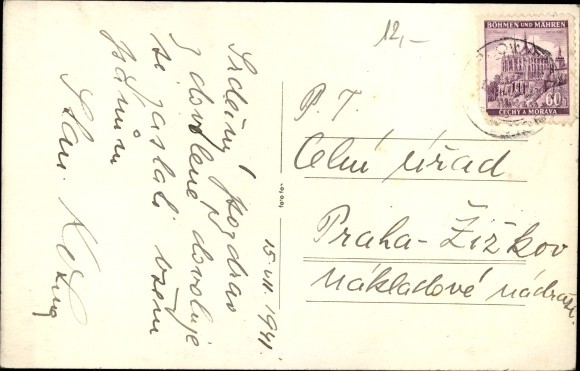 12,-
BÖHMEN UND MÄHREN
60
ČECHY A MORAVA
Srdečný pozdrav
z dovolené dovoluje
si zaslati všem
pánům
Stan.
15. VII. 1941.
P. T.
Celní úřad
Praha-Žižkov
nákladové nádraží